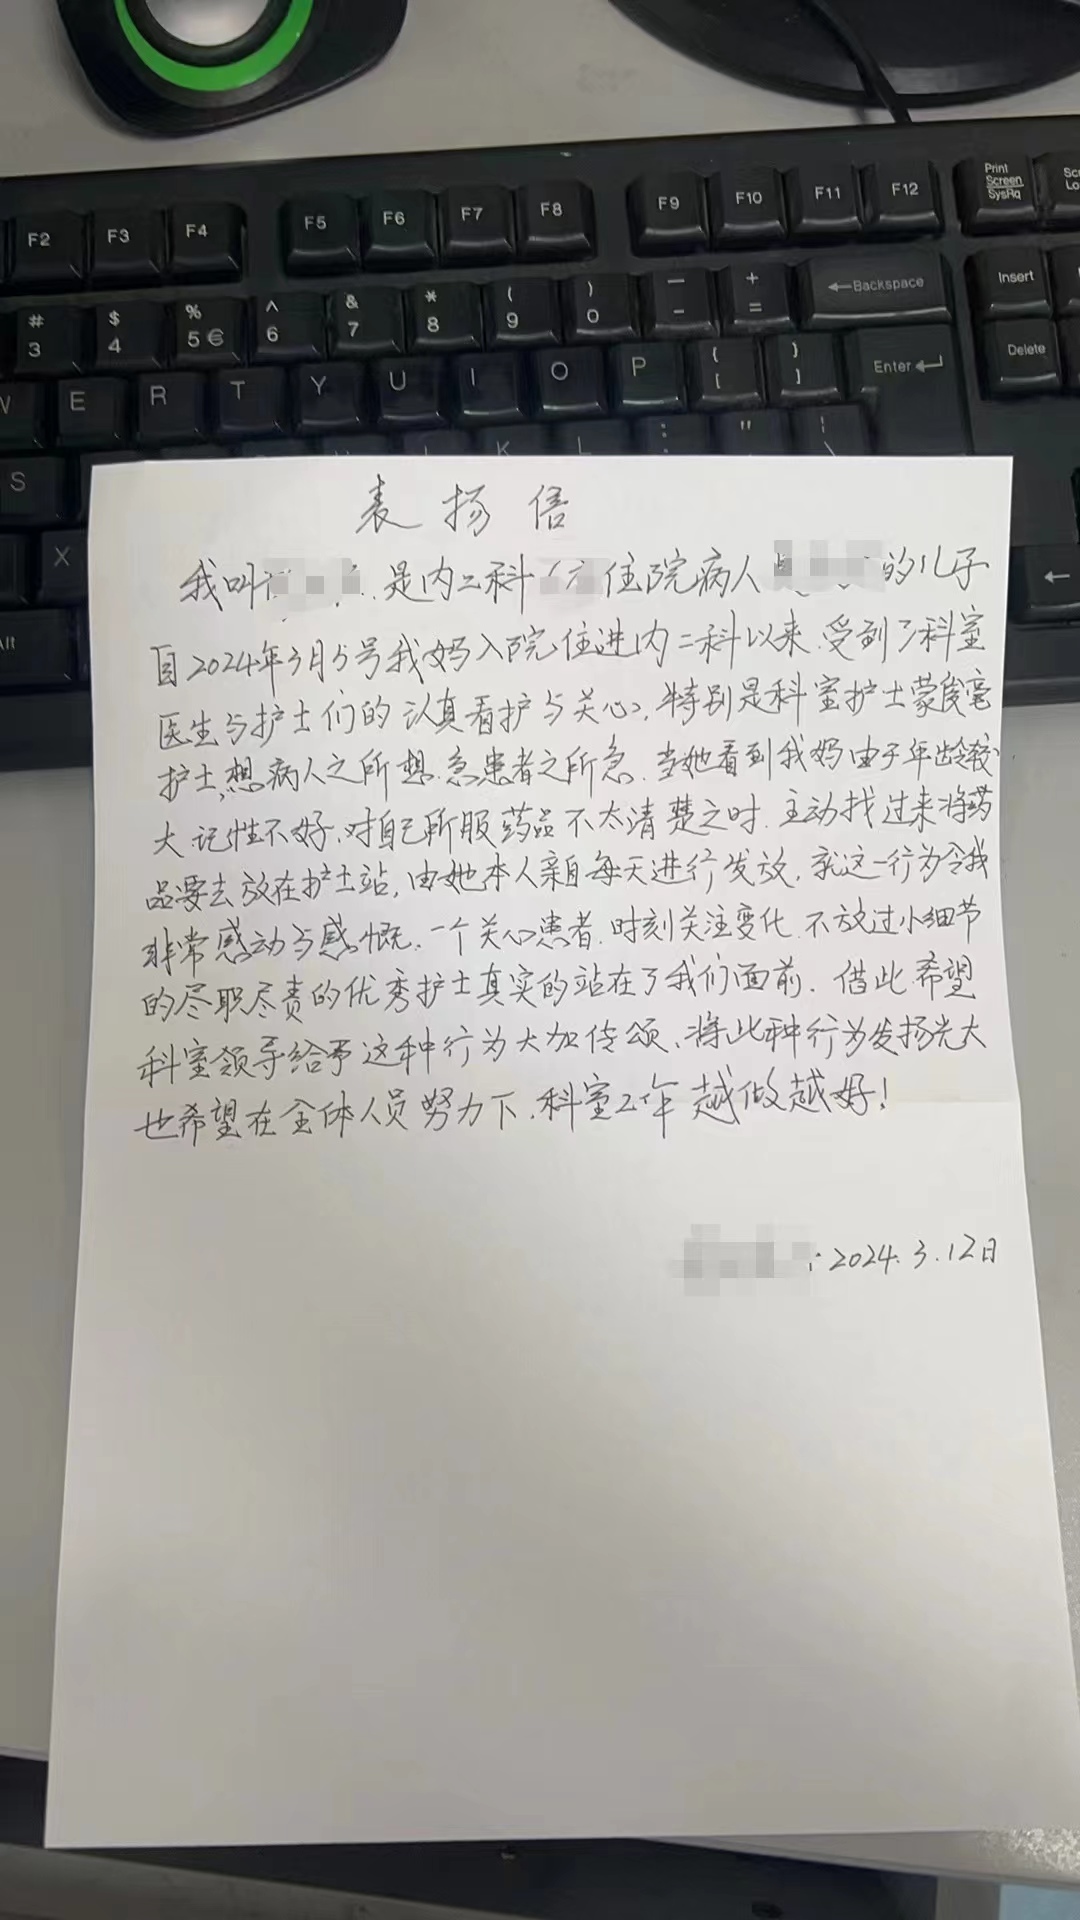 F2 F3 F4 F5 F6 F7 F8 F9 F10 F11 F12 Print Screen SysRq
# 3 $ 4 % 5 € ^ 6 & 7 * 8 ( 9 ) 0 — - + = ←Backspace Insert
E R T Y U I O P { [ } ] Enter Delete
S K L : "
X
表扬信
我叫 是内二科 住院病人 的儿子
自2024年3月5号我妈入院住进内二科以来.受到了科室
医生与护士们的认真看护与关心,特别是科室护士蒙俊毫
护士,想病人之所想.急患者之所急.当她看到我妈由于年龄较
大.记性不好,对自己所服药品不太清楚之时.主动找过来将药
品要去放在护士站,由她本人亲自每天进行发放,就这一行为令我
非常感动与感慨,一个关心患者.时刻关注变化.不放过小细节
的尽职尽责的优秀护士真实的站在了我们面前.借此希望
科室领导给予这种行为大加传颂,将此种行为发扬光大
也希望在全体人员努力下,科室工作越做越好!
2024.3.12日